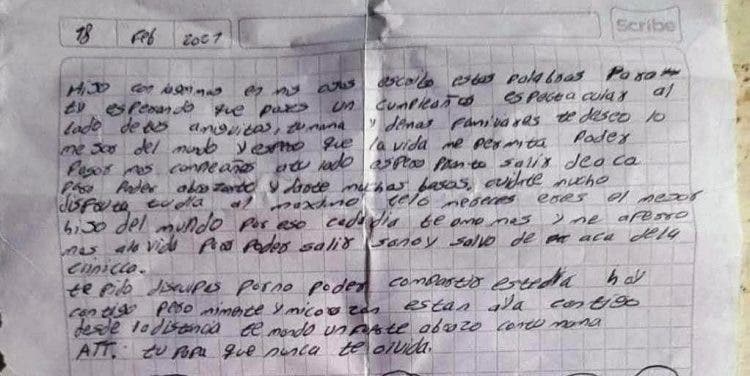 18 Feb 2021
Scribe
Hijo con lagrimas en mis ojos escribo estas palabras Para
tu esperando que pases un cumpleaños espectacular al
lado de tus amiguitos, tu mama y demas familiares te deseo lo
mejor del mundo y espero que la vida me permita Poder
Pasar mas cumpleaños a tu lado espero pronto salir de aca
Para Poder abrazarte y darte muchas besos, cuidate mucho
disfruta tu dia al maximo te lo mereces eres el mejor
hijo del mundo Por eso cada dia te amo mas y me aferro
mas a la vida Para Poder salir sano y salvo de aca de la
clinica.
te pido disculpas por no poder compartir este dia hoy
contigo pero mi mente y mi corazon estan alla contigo
desde la distancia te mando un fuerte abrazo con tu mama
ATT. tu papa que nunca te olvida.